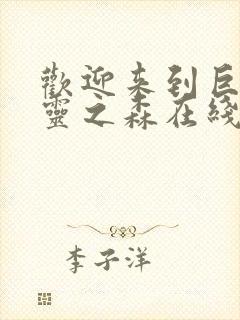 歡迎来到巨
靈之森在綫
李子洋